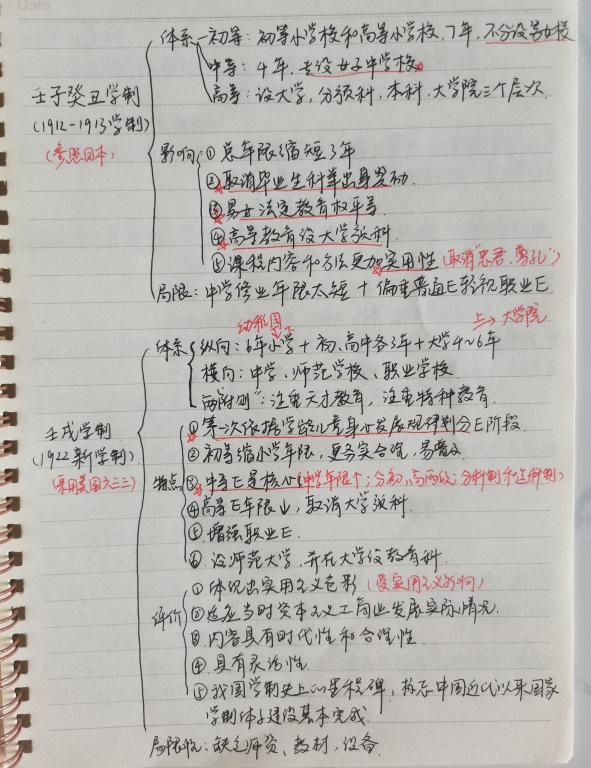 Data
体系－初等：初等小学校和高等小学校，7年，不分设男女校
中等：4年，专设女子中学校
高等：设大学，分预科，本科，大学院三个层次.
壬子癸丑学制
(1912-1913学制)
(参照日本)
影响：① 总年限缩短3年
②取消毕业生科举出身奖励.
③男女法定教育权平等
④高等教育设大学预科.
⑤课程内容和方法更加实用性(取消"忠君、尊孔")
局限：中学修业年限太短＋偏重普通E轻视职业E.
幼稚园
上→大学院
体系 纵向：6年小学＋初、高中各3年＋大学4~6年
横向：中学、师范学校、职业学校
两"附则"：注重天才教育，注重特种教育.
壬戌学制
(1922新学制)
(采用美国六三三)
特点 ①第一次依据学龄儿童身心发展规律划分E阶段.
②初等缩小学年限，更务实合理，易普及.
③中等E是核心(中学年限个；分初、高两级；分科制和选科制)
④高等E年限业，取消大学预科.
⑤增强职业E.
⑥设师范大学，并在大学设教育科.
评价 ①体现出实用主义色彩(受实用主义影响)
②适应当时资本主义工商业发展实际情况.
③内容具有时代性和合理性.
④具有灵活性.
⑤我国学制史上的里程碑，标志中国近代以来国家
学制体系建设基本完成.
局限性：缺乏师资、教材，设备.